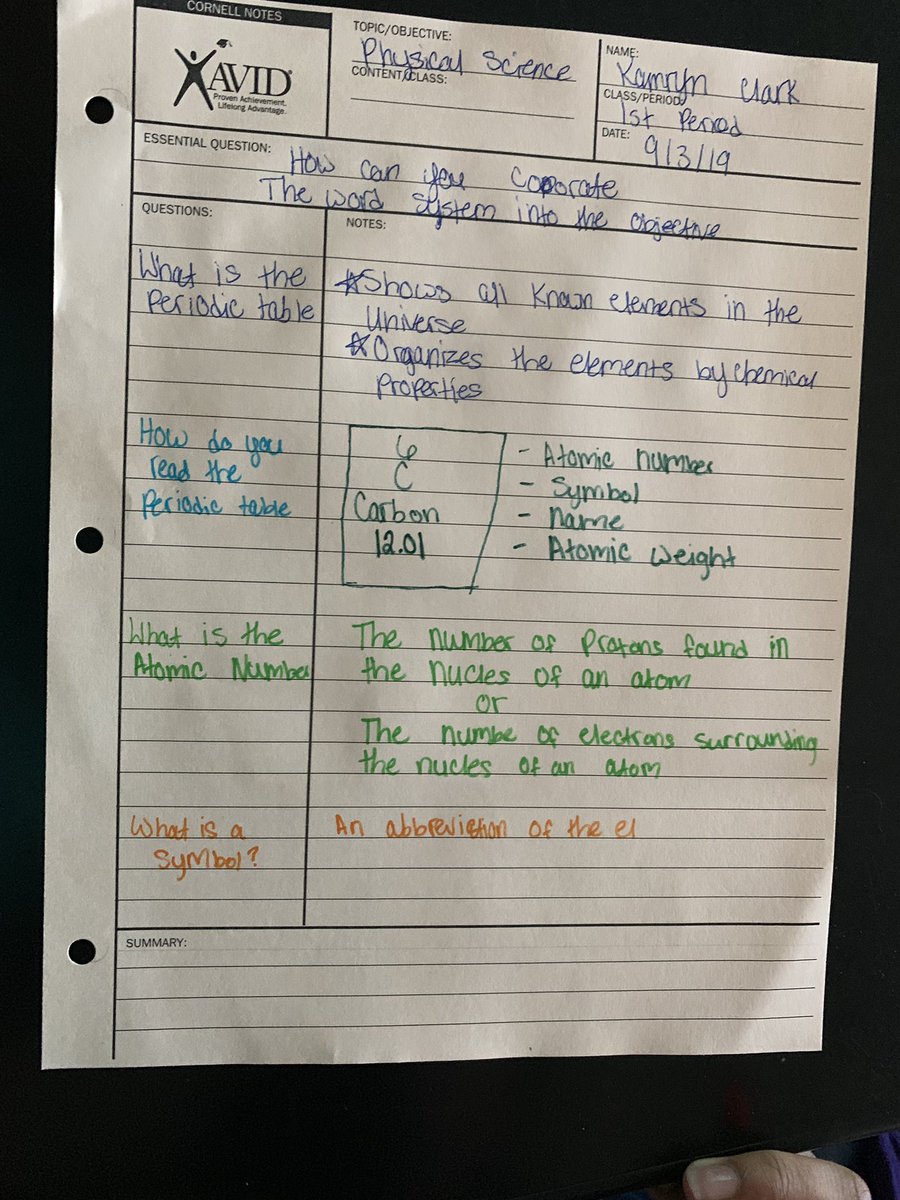 CORNELL NOTES
AVID®
Proven Achievement.
Lifelong Advantage.
TOPIC/OBJECTIVE:
Physical Science
CONTENT/CLASS:
NAME:
Kamryn Clark
CLASS/PERIOD:
1st Period
DATE:
9/3/19
ESSENTIAL QUESTION:
How can you Coporate
The word system into the objective
QUESTIONS:
NOTES:
What is the
Periodic table
☆Shows all Known elements in the
Universe
☆Organizes the elements by chemical
Properties
How do you
read the
Periodic table
6 - Atomic number
C - Symbol
Carbon - Name
12.01 - Atomic weight
What is the
Atomic Number
The number of Protons found in
the nucles of an atom
or
The numbe of electrons surrounding
the nucles of an atom
What is a
Symbol?
An abbreviction of the el
SUMMARY: